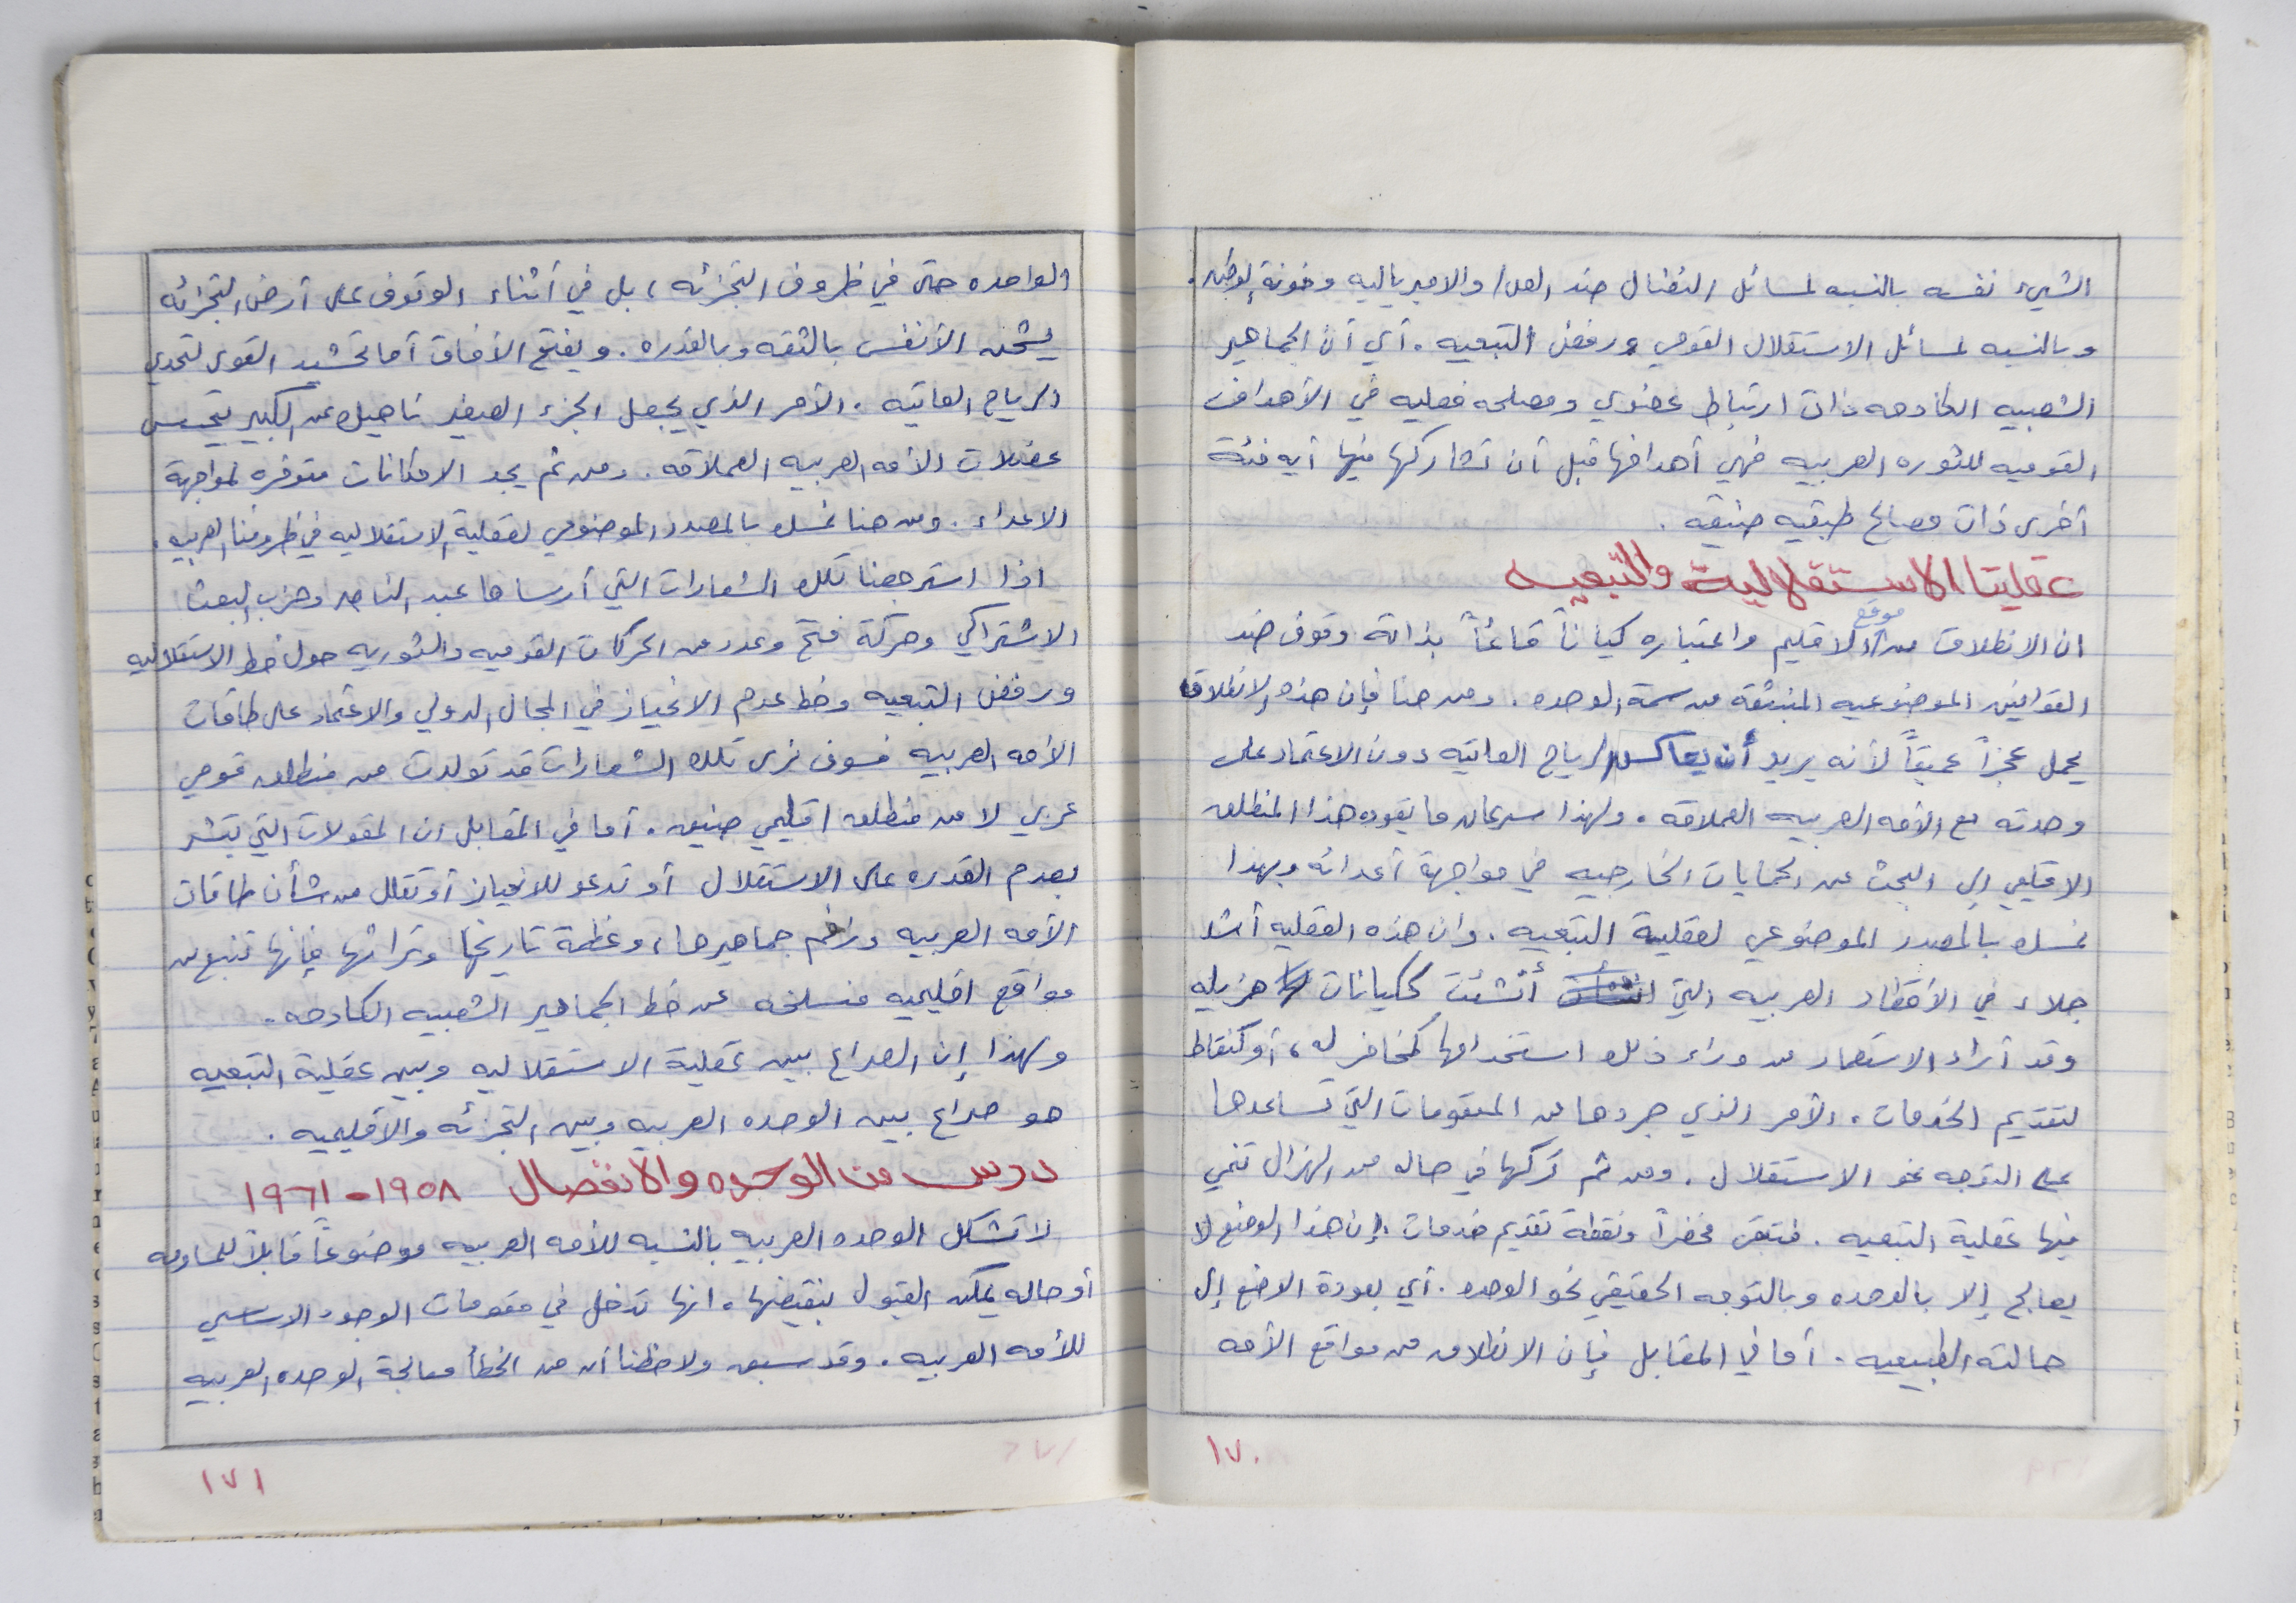 الشيء نفسه بالنسبه لمسائل النضال ضد العدو والامبرياليه وخونة الوطن.
وبالنسبه لمسائل الاستقلال القومي ورفض التبعيه. أي أن الجماهير
الشعبيه الكادحه ذات ارتباط عضوي ومصلحه فعليه في الأهداف
القوميه للثوره العربيه فهي أهدافها قبل أن تشاركها فيها أيه فئة
أخرى ذات مصالح طبقيه ضيقه.
عقليتا الاستقلالية والتبعيه
ان الانطلاق من موقع الاقليم واعتباره كياناً قائماً بذاته وقوف ضد
القوانين الموضوعيه المنبثقة من سمة الوحده. ومن هنا فإن هذا الانطلاق
يحمل عجزاً عميقاً لأنه يريد أن يعاكس الرياح العاتيه دون الاعتماد على
وحدته مع الأمه العربيه العملاقه. ولهذا سرعان ما يقوده هذا المنطلق
الاقليمي إلى البحث عن الحمايات الخارجيه في مواجهة أعدائه وبهذا
نمسك بالمصدر الموضوعي لعقلية التبعيه. وان هذه العقليه أشد
جلاء في الأقطار العربيه التي أنشئت ككيانات هزيله
وقد أراد الاستعمار من وراء ذلك استخدامها كمخافر له، أو كنقاط
لتقديم الخدمات. الأمر الذي جردها من المقومات التي تساعدها
على التوجه نحو الاستقلال. ومن ثم تركها في حاله من الهزال تنمي
فيها عقلية التبعيه. فتبقى مخفراً ونقطة تقديم خدمات. إن هذا الوضع لا
يعالج إلا بالوحده وبالتوجه الحقيقي نحو الوحده. أي بعودة الوضع إلى
حالته الطبيعيه. أما في المقابل فإن الانطلاق من مواقع الأمه
١٧٠
الواحده حتى في ظروف التجزئه، بل في أثناء الوقوف على أرض التجزئه
يشحن الأنفس بالثقه وبالقدره. ويفتح الآفاق أما تحشيد القوى لتحدي
الرياح العاتيه. الأمر الذي يجعل الجزء الصغير ناهيك عن الكبير يتحسس
عضلات الأمه العربيه العملاقه. ومن ثم يجد الامكانات متوفره لمواجهة
الاعداء. ومن هنا نمسك بالمصدر الموضوعي لعقلية الاستقلاليه في ظروفنا العربيه.
اذا استرجعنا تلك الشعارات التي أرساها عبد الناصر وحزب البعث
الاشتراكي وحركة فتح وعدد من الحركات القوميه والثوريه حول خط الاستقلاليه
ورفض التبعيه وخط عدم الانحياز في المجال الدولي والاعتماد على طاقات
الأمه العربيه فسوف نرى تلك الشعارات قد تولدت من منطلق قومي
عربي لا من منطلق اقليمي ضيق. أما في المقابل ان المقولات التي تبشر
بعدم القدره على الاستقلال أو تدعو للانحياز أو تقلل من شأن طاقات
الأمه العربيه وزخم جماهيرها، وعظمة تاريخها وتراثها فإنها تنبع من
مواقع اقليميه منسلخه عن خط الجماهير الشعبيه الكادحه.
ولهذا إن الصراع بين عقلية الاستقلاليه وبين عقلية التبعيه
هو صراع بين الوحده العربيه وبين التجزئه والاقليميه.
درس من الوحده والانفصال ١٩٥٨-١٩٦١
لا تشكل الوحده العربيه بالنسبه للأمه العربيه موضوعاً قابلاً للمساومه
أو حاله يمكن القبول بنقيضها. انها تدخل في مقومات الوجود الاساسي
للأمه العربيه. وقد سبق ولاحظنا أن من الخطأ معالجة الوحده العربيه
١٧١